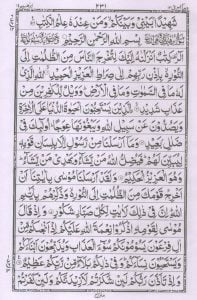 ٢٣١
شَهِيْدًۢا بَيْنِيْ وَبَيْنَكُمْ وَمَنْ عِنْدَهٗ عِلْمُ الْكِتٰبِ
بِسْمِ اللّٰهِ الرَّحْمٰنِ الرَّحِيْمِ
الٓرٰ كِتٰبٌ اَنْزَلْنٰهُ اِلَيْكَ لِتُخْرِجَ النَّاسَ مِنَ الظُّلُمٰتِ اِلَى
النُّوْرِ بِاِذْنِ رَبِّهِمْ اِلٰى صِرَاطِ الْعَزِيْزِ الْحَمِيْدِ اللّٰهِ الَّذِيْ لَهٗ
مَا فِي السَّمٰوٰتِ وَمَا فِي الْاَرْضِ وَوَيْلٌ لِّلْكٰفِرِيْنَ مِنْ
عَذَابٍ شَدِيْدِ الَّذِيْنَ يَسْتَحِبُّوْنَ الْحَيٰوةَ الدُّنْيَا عَلَى الْاٰخِرَةِ
وَيَصُدُّوْنَ عَنْ سَبِيْلِ اللّٰهِ وَيَبْغُوْنَهَا عِوَجًا اُولٰٓئِكَ فِيْ
ضَلٰلٍۢ بَعِيْدٍ وَمَآ اَرْسَلْنَا مِنْ رَّسُوْلٍ اِلَّا بِلِسَانِ قَوْمِهٖ
لِيُبَيِّنَ لَهُمْ فَيُضِلُّ اللّٰهُ مَنْ يَّشَآءُ وَيَهْدِيْ مَنْ يَّشَآءُ
وَهُوَ الْعَزِيْزُ الْحَكِيْمُ وَلَقَدْ اَرْسَلْنَا مُوْسٰى بِاٰيٰتِنَآ اَنْ
اَخْرِجْ قَوْمَكَ مِنَ الظُّلُمٰتِ اِلَى النُّوْرِ وَذَكِّرْهُمْ بِاَيّٰىمِ
اللّٰهِ اِنَّ فِيْ ذٰلِكَ لَاٰيٰتٍ لِّكُلِّ صَبَّارٍ شَكُوْرٍ وَاِذْ قَالَ
مُوْسٰى لِقَوْمِهِ اذْكُرُوْا نِعْمَةَ اللّٰهِ عَلَيْكُمْ اِذْ اَنْجٰىكُمْ مِّنْ
اٰلِ فِرْعَوْنَ يَسُوْمُوْنَكُمْ سُوْٓءَ الْعَذَابِ وَيُذَبِّحُوْنَ اَبْنَآءَكُمْ
وَيَسْتَحْيُوْنَ نِسَآءَكُمْ وَفِيْ ذٰلِكُمْ بَلَآءٌ مِّنْ رَّبِّكُمْ عَظِيْمٌ
وَاِذْ تَاَذَّنَ رَبُّكُمْ لَئِنْ شَكَرْتُمْ لَاَزِيْدَنَّكُمْ وَلَئِنْ كَفَرْتُمْ